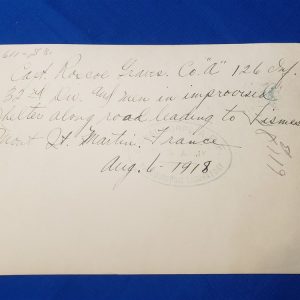 Capt. Roscoe Graves. Co. "A" 126 Inf.
32nd Div. and men in improvised
shelter along road leading to Fismes
Mont St. Martin, France
Aug. 6 - 1918